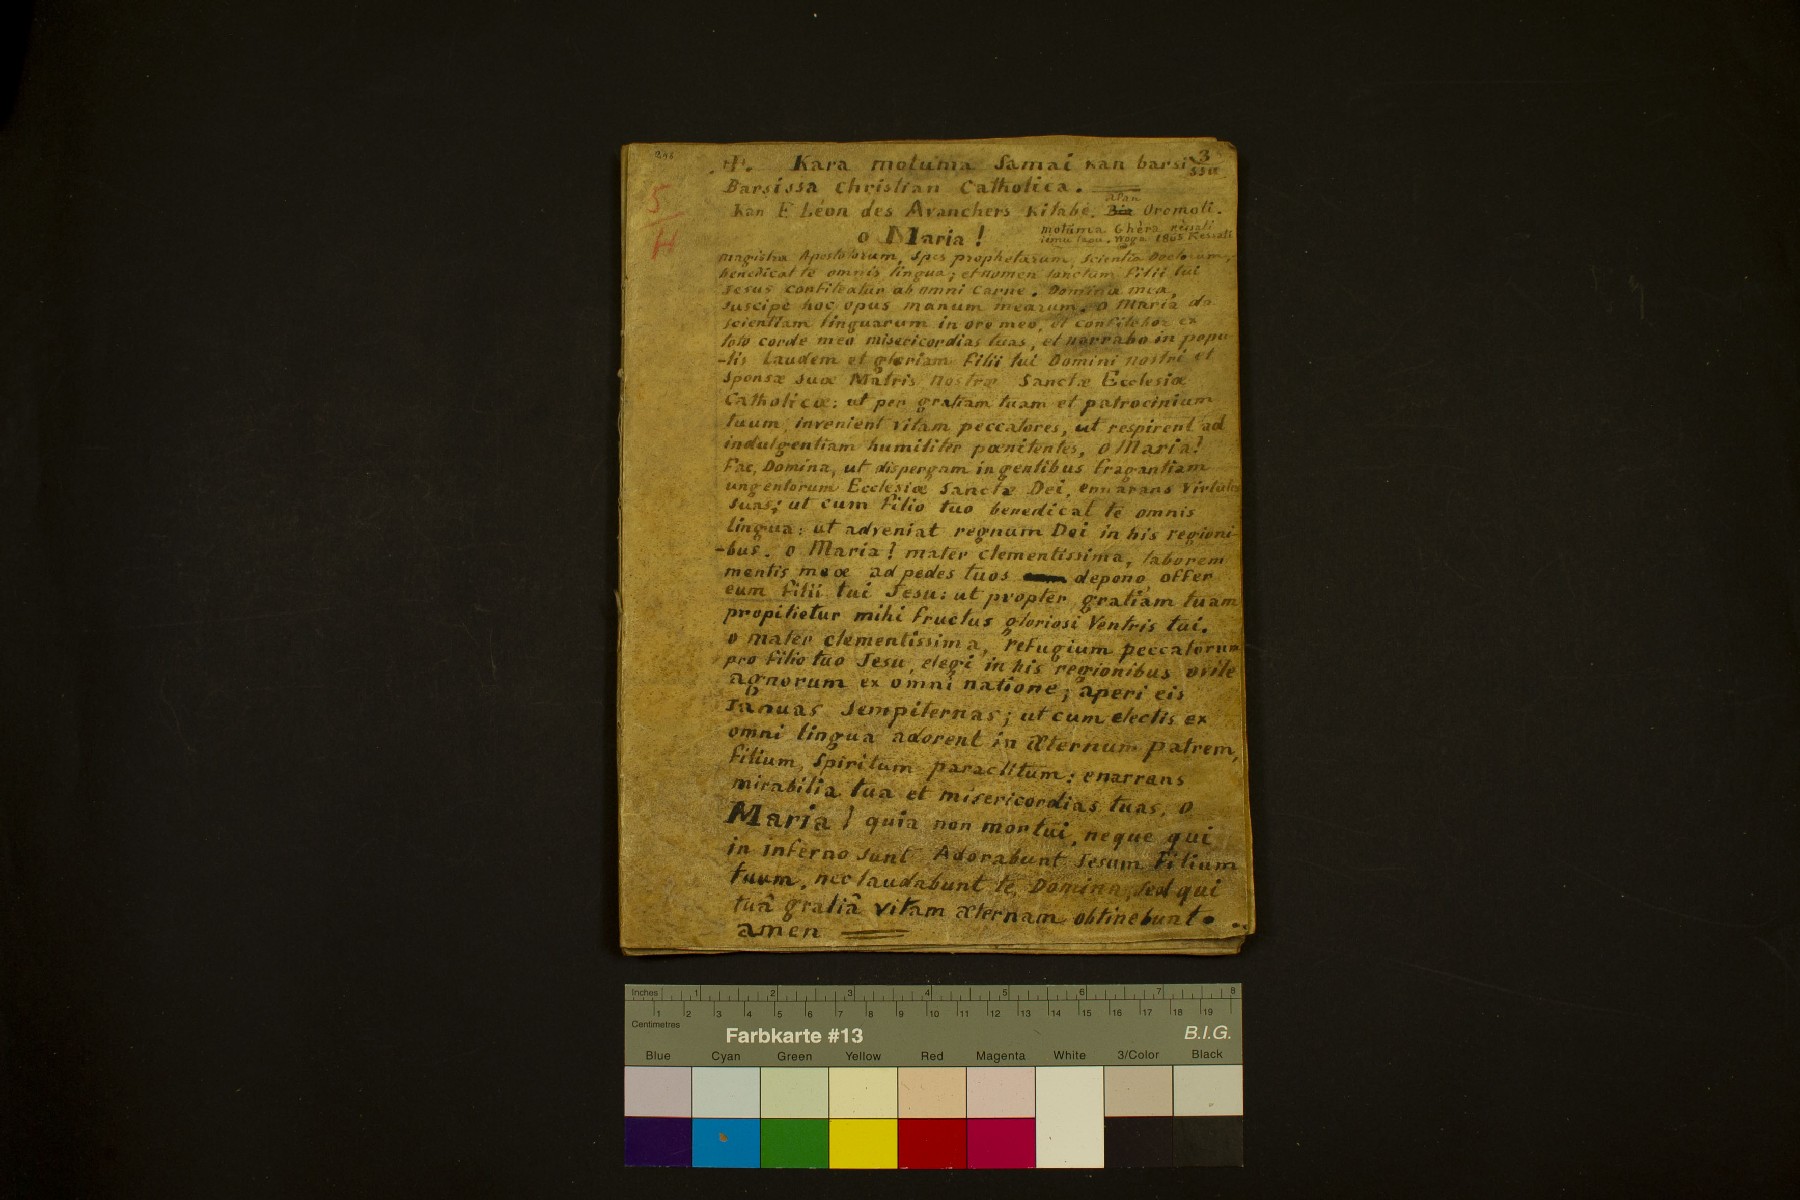 246
5/H
3
✝. Kara motuma Samai kan barsi
ssu
Barsissa Christian Catholica.
afan
Kan F Léon des Avanchers Kitabé. Bia Oromoti.
o Maria!
motúma Ghéra
1865
magistra Apostolorum, Spes prophetarum, Scientia Doctorum,
benedicat te omnis lingua; et nomen sanctum filii tui
Jesus confiteatur ab omni carne. Domina mea,
suscipe hoc opus manum mearum. o Maria da
scientiam linguarum in ore meo, et confitebor ex
toto corde meo misericordias tuas, et narrabo in popu-
-lis laudem et gloriam Filii tui Domini nostri et
Sponsæ suæ Matris nostræ Sanctæ Ecclesiæ
Catholicæ: ut per gratiam tuam et patrocinium
tuum, invenient vitam peccatores, ut respirent ad
indulgentiam humiliter pœnitentes, o Maria!
Fac, Domina, ut dispergam in gentibus fragantiam
ungentorum Ecclesiæ Sanctæ Dei, ennarans Virtutes
suas; ut cum Filio tuo benedicat te omnis
lingua: ut adveniat regnum Dei in his regioni-
-bus. o Maria! mater clementissima, laborem
mentis meæ ad pedes tuos depono, offer
eum filii tui Jesu: ut propter gratiam tuam
propitietur mihi fructus gloriosi Ventris tui.
o mater clementissima, refugium peccatorum
pro filio tuo Jesu, elegi in his regionibus ovile
agnorum ex omni natione; aperi eis
Januas Sempiternas; ut cum electis ex
omni lingua adorent in Æternum patrem,
filium, Spiritum paraclitum: enarrans
mirabilia tua et misericordias tuas, o
Maria! quia non mortui, neque qui
in inferno sunt Adorabunt Jesum Filium
tuum, nec laudabunt te Domina, sed qui
tuâ gratiâ vitam æternam obtinebunt.
amen
Inches 1 2 3 4 5 6 7 8
1 2 3 4 5 6 7 8 9 10 11 12 13 14 15 16 17 18 19
Centimetres
Farbkarte #13 B.I.G.
Blue Cyan Green Yellow Red Magenta White 3/Color Black